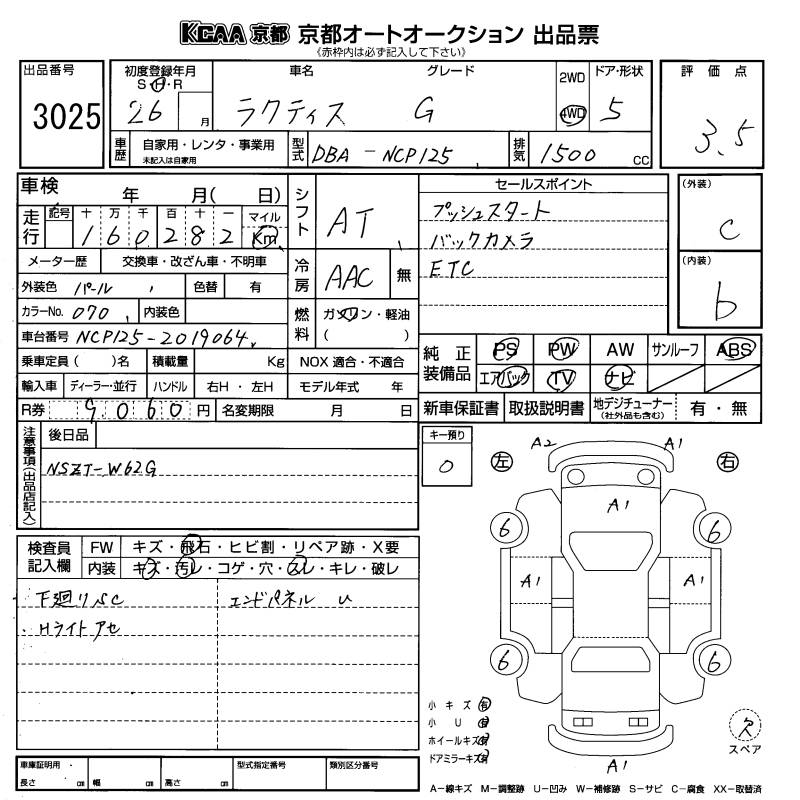 KCAA 京都 京都オートオークション 出品票
《赤枠内は必ず記入して下さい》
出品番号
3025
初度登録年月
S・H・R
26 月
車名
ラクティス
グレード
G
2WD
4WD
ドア・形状
5
評価点
3.5
車歴
自家用・レンタ・事業用
未記入は自家用
型式
DBA-NCP125
排気
1500 cc
車検 年 月( 日)
走行
記号 十 万 千 百 十 一 マイル
1 6 0 2 8 2 Km
メーター歴 交換車・改ざん車・不明車
外装色 パール 色替 有
カラーNo. 070 内装色
車台番号 NCP125-2019064
乗車定員 ( )名 積載量 Kg
輸入車 ディーラー・並行 ハンドル 右H・左H
R券 9060 円 名変期限 月 日
シフト AT
冷房 AAC 無
燃料 ガソリン・軽油
( )
NOX 適合・不適合
モデル年式 年
セールスポイント
プッシュスタート
バックカメラ
ETC
(外装)
C
(内装)
b
純正装備品
PS PW AW サンルーフ ABS
エアバック TV ナビ
新車保証書 取扱説明書 地デジチューナー 有・無
(社外品も含む)
注意事項(出品店記入)
後日品
NSZT-W62G
キー預り
0
検査員記入欄
FW キズ・飛石・ヒビ割・リペア跡・X要
内装 キズ・汚レ・コゲ・穴・スレ・キレ・破レ
下廻りSC
Hライトアセ
エンドパネル U
左 右
A2 A1
A1
6 6
A1 A1
6 6
A1
小キズ 有
小U 有
ホイールキズ 有
ドアミラーキズ 有
欠
スペア
車庫証明用・
長さ cm 幅 cm 高さ cm
型式指定番号
類別区分番号
A-線キズ M-調整跡 U-凹み W-補修跡 S-サビ C-腐食 XX-取替済